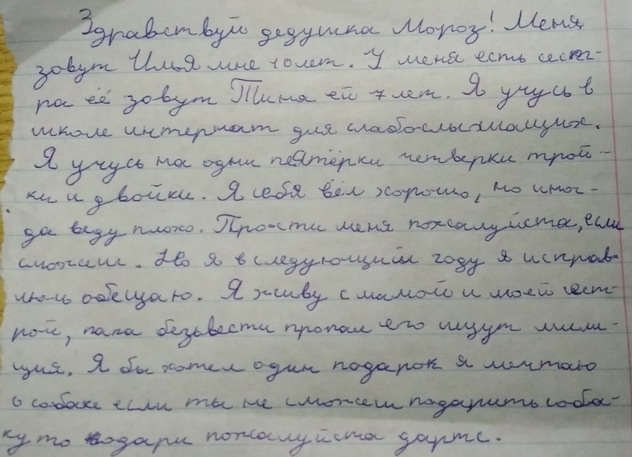 Здравствуй дедушка Мороз! Меня
зовут Илья мне 10 лет. У меня есть сест-
ра её зовут Тина ей 7 лет. Я учусь в
школе интернат для слабослышащих.
Я учусь на одни пятёрки четверки трой-
ки и двойки. Я себя вёл хорошо, но иног-
да веду плохо. Прости меня пожалуйста, если
сможеш. Но я в следующий году я исправ-
люсь обещаю. Я живу с мамой и моей сест-
рой, папа безьвести пропал его ищут мили-
ция. Я бы хотел один подарок я мечтаю
о собаке если ты не сможеш подарить соба-
ку то подари пожалуйста дартс.